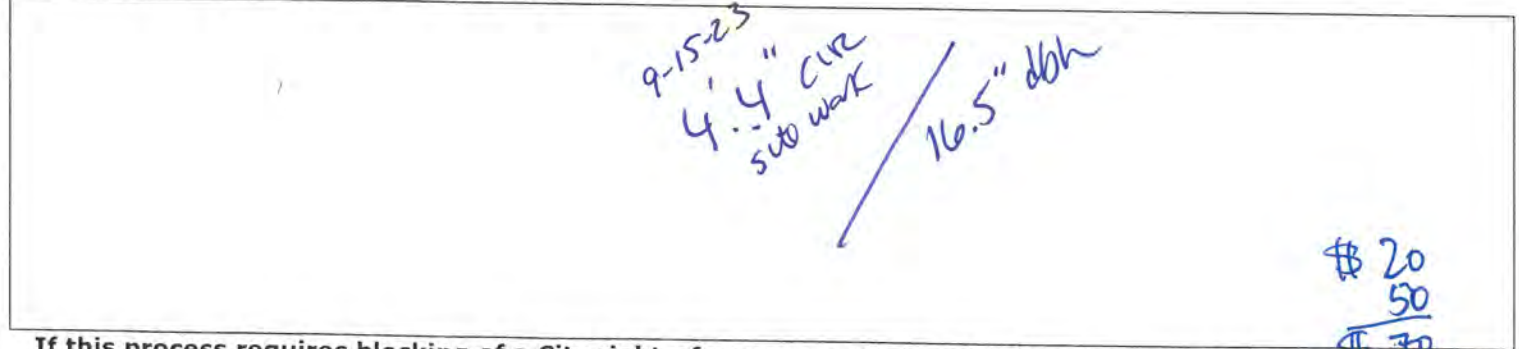 9-15-23
4'.4" circ
site work
16.5" dbh
$ 20
50
$ 70
If this process requires blocking of a City right of